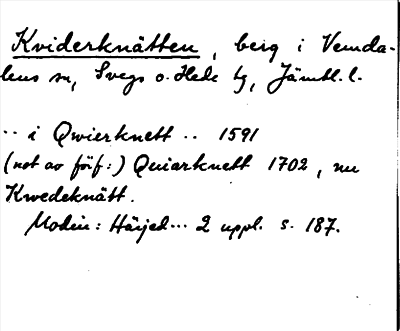 Kviderknätten, berg i Vemda-
lens sn, Svegs o. Hede tg, Jämtl. l.
.. i Qwierknett .. 1591
(not av förf:) Quiarknett 1702, nu
Kwedeknätt.
Modin: Härjed... 2 uppl. s. 187.